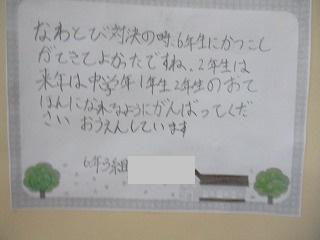 なわとび対決の時、6年生にかつこし
ができてよかったですね。2年生は
来年は中学年1年生2年生のおて
ほんになれるようにがんばってくだ
さい おうえんしています
6年3組